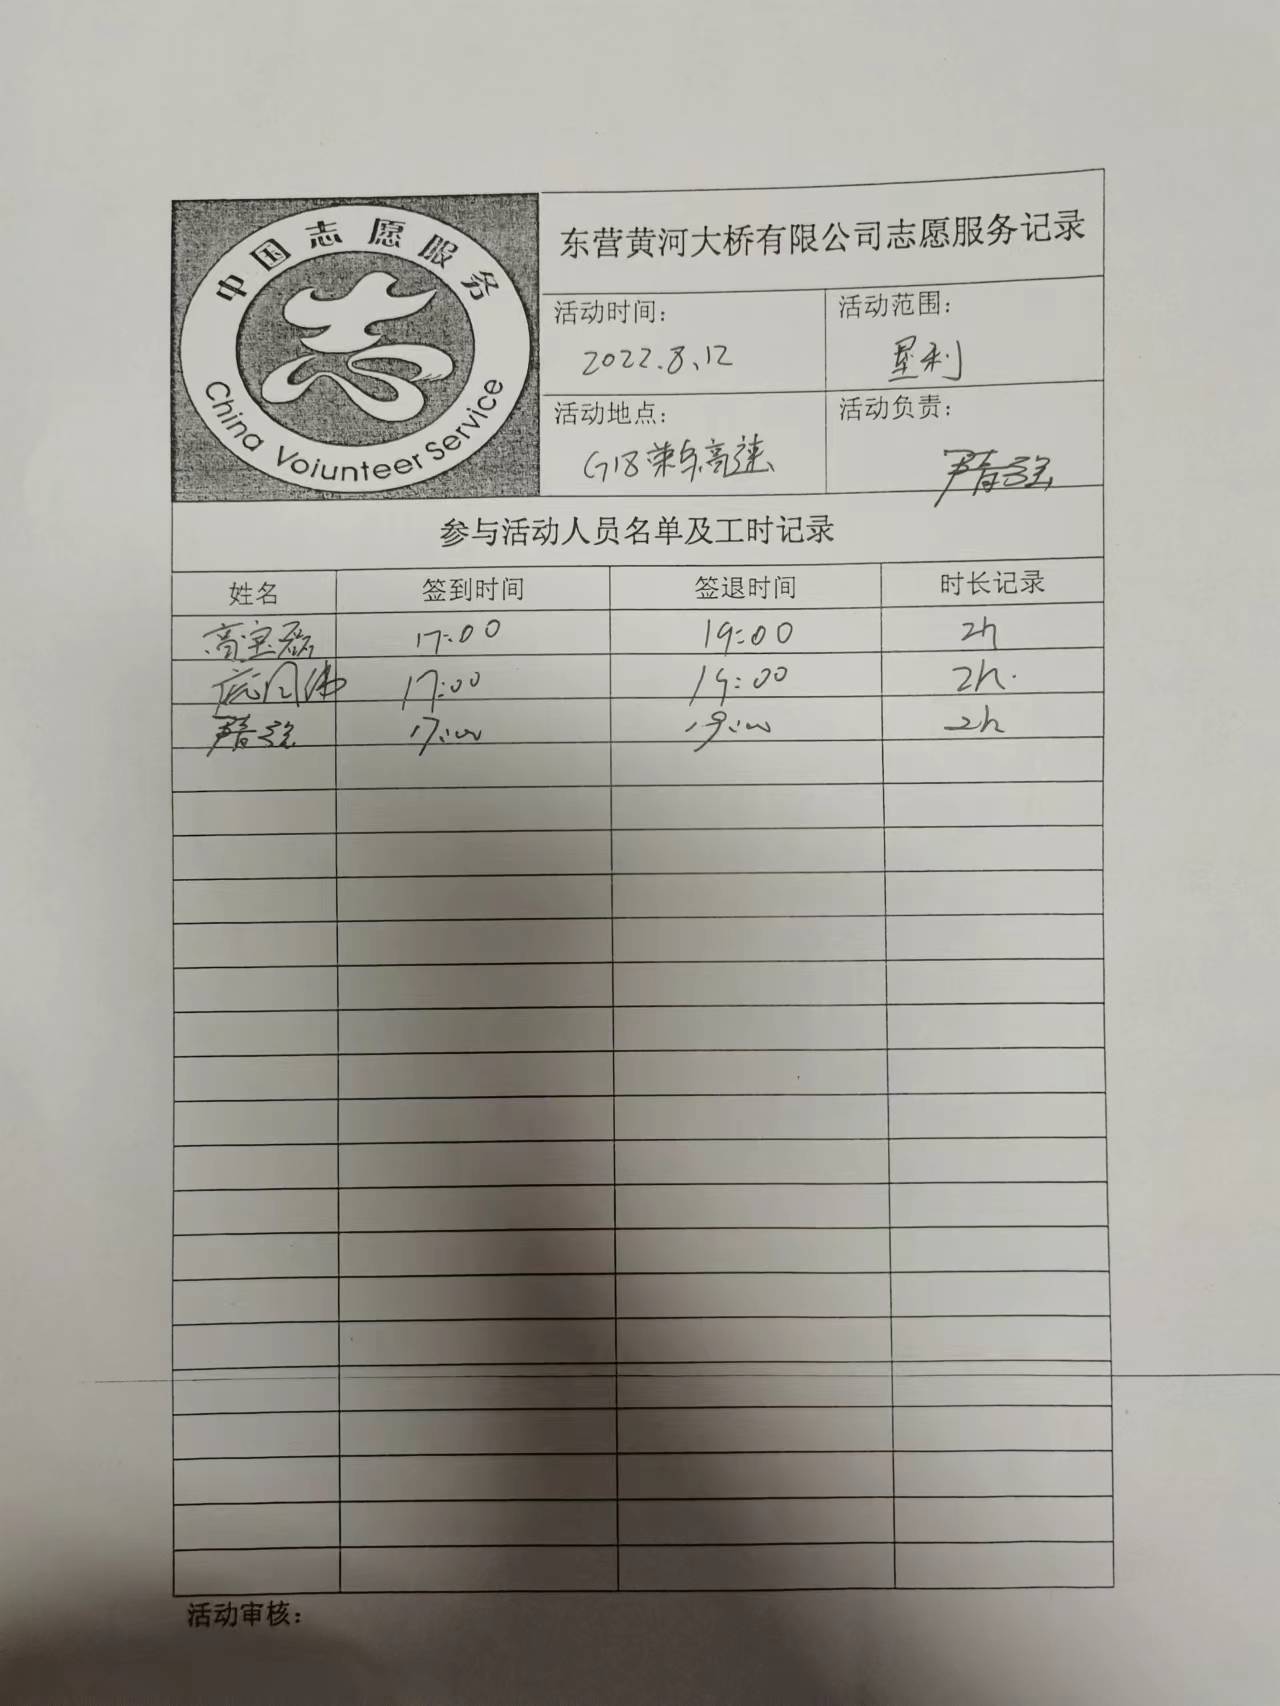 中国志愿服务
China Voiunteer Service
东营黄河大桥有限公司志愿服务记录
活动时间：
活动范围：
2022.8.12
垦利
活动地点：
活动负责：
G18荣乌高速
参与活动人员名单及工时记录
姓名 签到时间 签退时间 时长记录
高宝磊 17:00 19:00 2h
17:00 19:00 2h.
17:00 19:00 2h
活动审核：